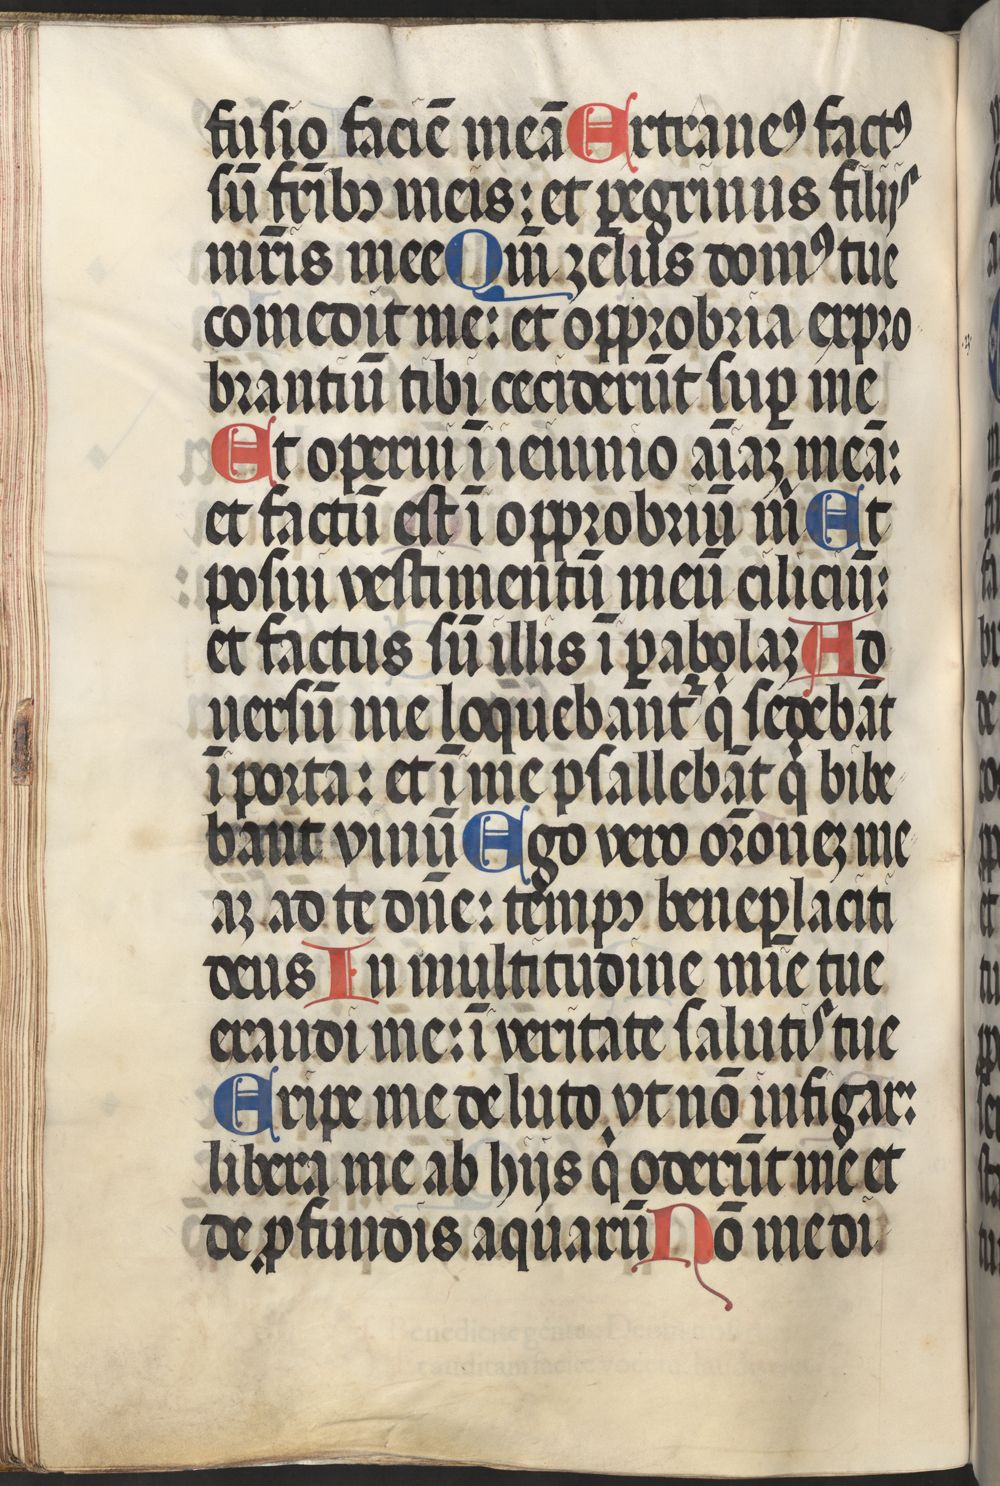 fusio faciē meā Extraneꝰ factꝰ
sū fr̄ibꝫ meis: et ꝑegrinus filijs
mr̄is mee Qm̄ zelus domꝰ tue
comedit me: et opprobria expro
brantiū tibi cecidexūt suꝑ me
Et operui ī ieiunio aīaꝫ meā:
et factū est ī opprobriū m̄ Et
posui vestimentū meū ciliciū:
et factus sū illis ī ꝑabolaꝫ Ad
uersū me loq̄uebant᷑ qͥ sedebāt
ī porta: et ī me psallebāt qͥ bibe
bant vinū Ego vero or̄oneꝫ me
aꝫ ad te dn̄e: tempꝫ beneplaciti
deus In multitudine mīe tue
exaudi me: ī veritate salutis tue
Eripe me de luto vt nō infigar:
libera me ab hijs qͥ oderūt me et
de ꝓfundis aquarū Nō me di